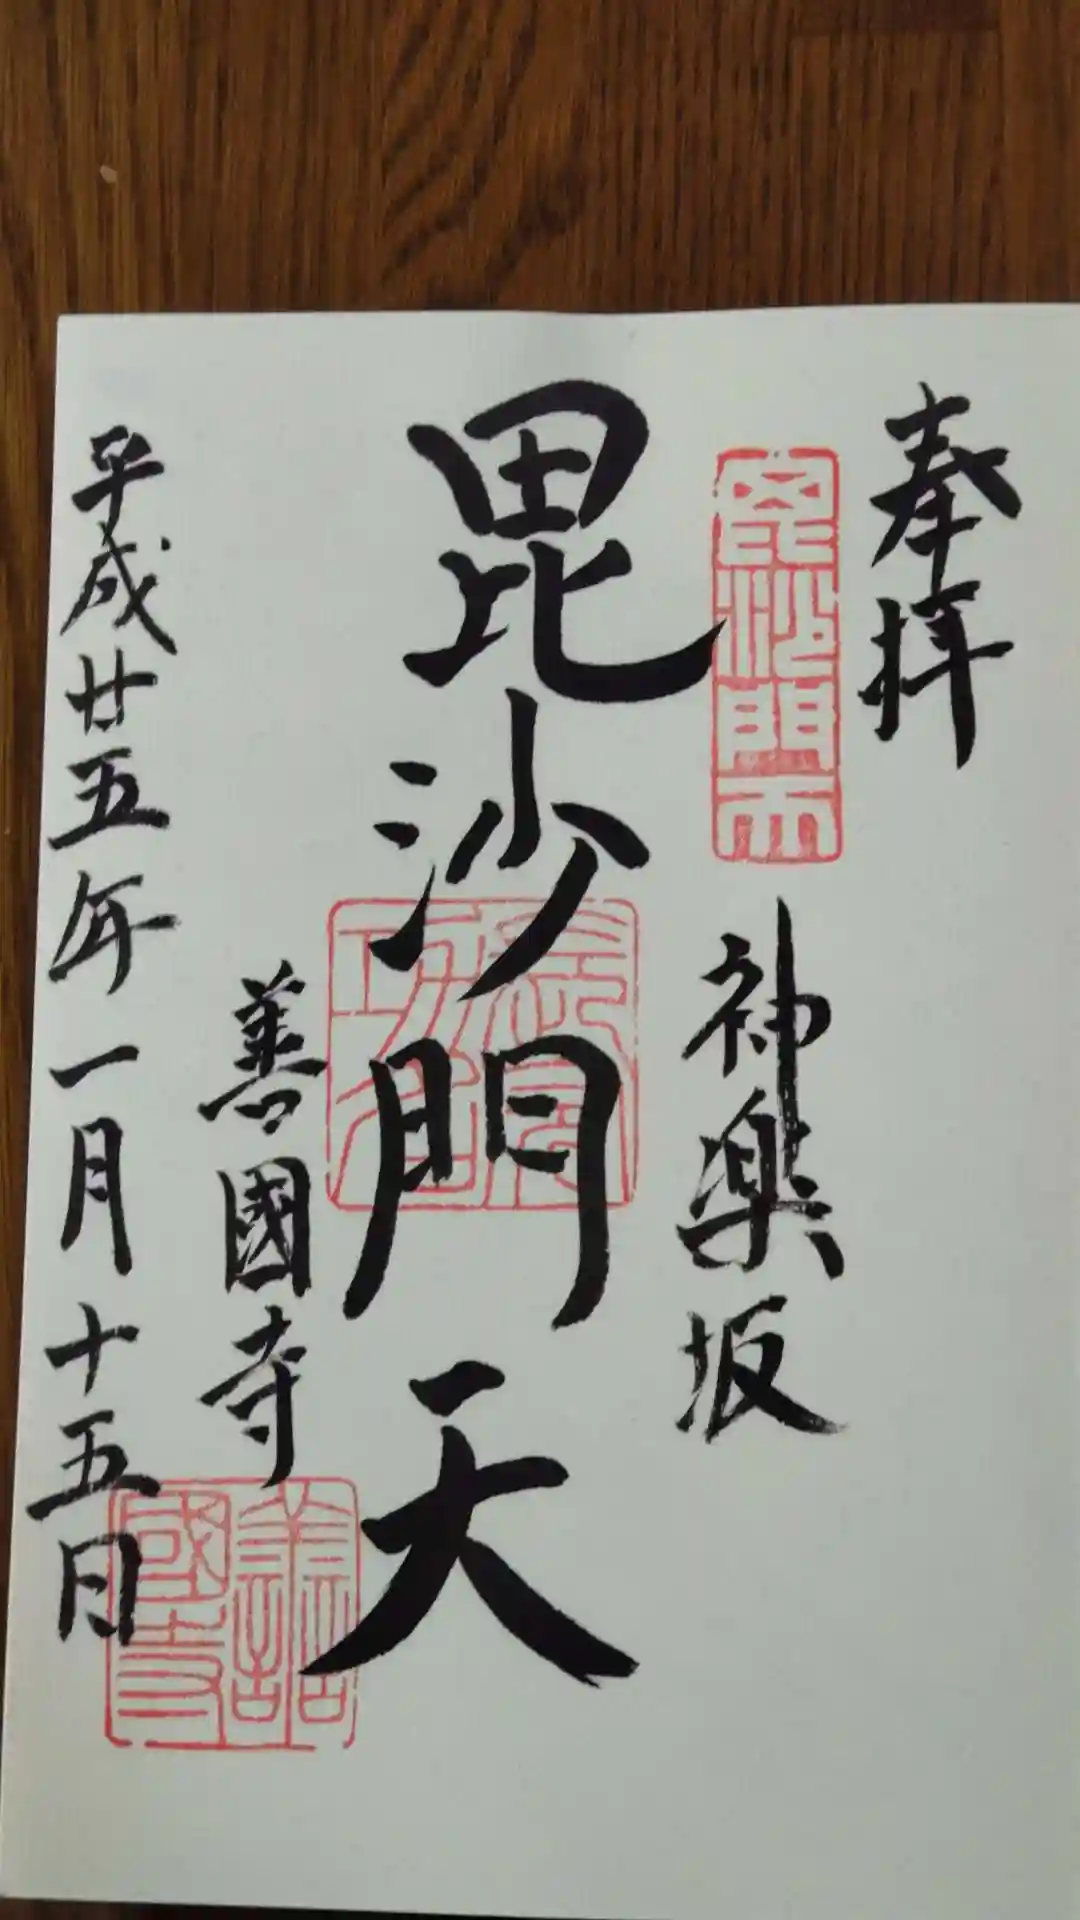 奉拝
毘沙門天
神楽坂
毘沙門天
善國寺
平成廿五年一月十五日
善國寺